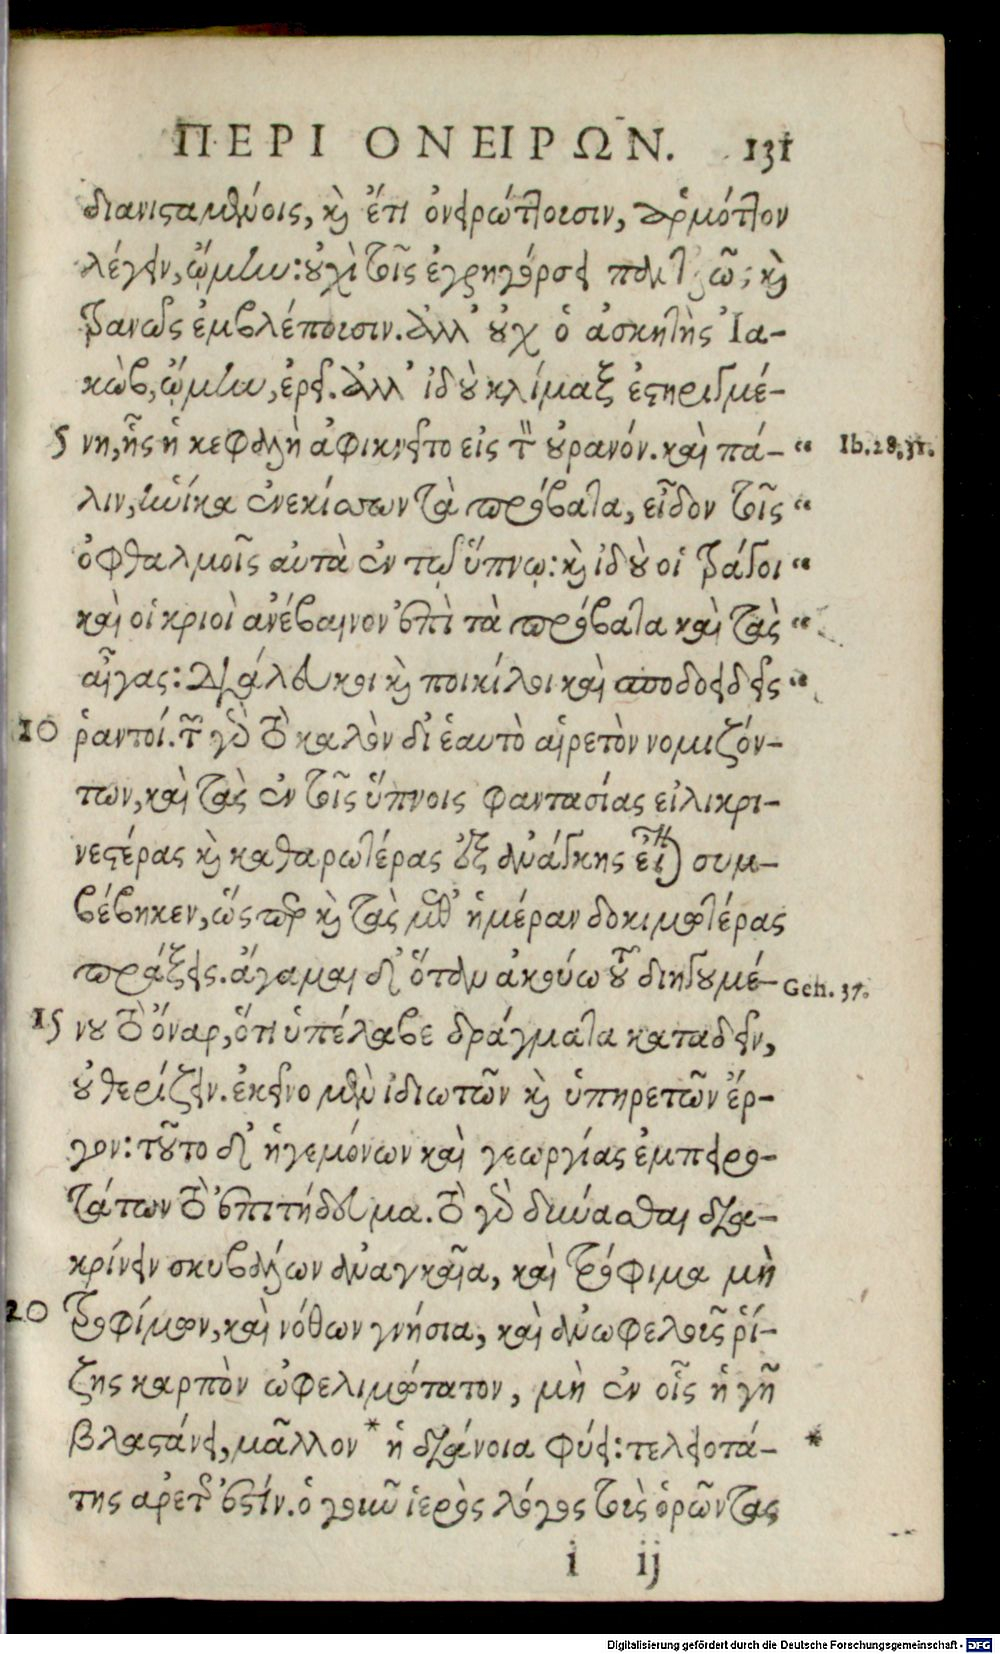 ΠΕΡΙ ΟΝΕΙΡΩΝ. 131
διανισταμένοις, καὶ ἔτι ὀνειρώττουσιν, ἁρμόττον
λέγειν, ᾤμην: οὐχὶ τοῖς ἐγρηγόρσει παντελῶς καὶ
τρανῶς ἐμβλέπουσιν. ἀλλ' οὐχ ὁ ἀσκητὴς Ἰα-
κὼβ, ᾤμην, ἐρεῖ. ἀλλ' ἰδοὺ κλίμαξ ἐστηριγμέ-
5 νη, ἧς ἡ κεφαλὴ ἀφικνεῖτο εἰς τὸν οὐρανόν. καὶ πά- “ Ib. 28. 31.
λιν, ἡνίκα ἐνεκίσσων τὰ πρόβατα, εἶδον τοῖς “
ὀφθαλμοῖς αὐτὰ ἐν τῷ ὕπνῳ: καὶ ἰδοὺ οἱ τράγοι “
καὶ οἱ κριοὶ ἀνέβαινον ἐπὶ τὰ πρόβατα καὶ τὰς “
αἶγας: διάλευκοι καὶ ποικίλοι καὶ σποδοειδεῖς “
10 ῥαντοί. τῶν γὰρ τὸ καλὸν δι' ἑαυτὸ αἱρετὸν νομιζόν-
των, καὶ τὰς ἐν τοῖς ὕπνοις φαντασίας εἰλικρι-
νεστέρας καὶ καθαρωτέρας ἐξ ἀνάγκης εἶναι συμ-
βέβηκεν, ὥσπερ καὶ τὰς μεθ' ἡμέραν δοκιμωτέρας
πράξεις. ἄγαμαι δ' ὅταν ἀκούσω τοῦ διηγουμέ- Gen. 37.
15 νου τὸ ὄναρ, ὅτι ὑπέλαβε δράγματα καταδεῖν,
οὐ θερίζειν. ἐκεῖνο μὲν ἰδιωτῶν καὶ ὑπηρετῶν ἔρ-
γον: τοῦτο δ' ἡγεμόνων καὶ γεωργίας ἐμπειρο-
τάτων τὸ ἐπιτήδευμα. τὸ γὰρ δύνασθαι δια-
κρίνειν σκυβάλων ἀναγκαῖα, καὶ τρόφιμα μὴ
20 τροφίμων, καὶ νόθων γνήσια, καὶ ἀνωφελοῦς ῥί-
ζης καρπὸν ὠφελιμώτατον, μὴ ἐν οἷς ἡ γῆ
βλαστάνει, μᾶλλον * ἡ διάνοια φύει: τελειοτά- *
της ἀρετῆς ἐστίν. ὁ γοῦν ἱερὸς λόγος τοὺς ὁρῶντας
i ij
Digitalisierung gefördert durch die Deutsche Forschungsgemeinschaft - DFG